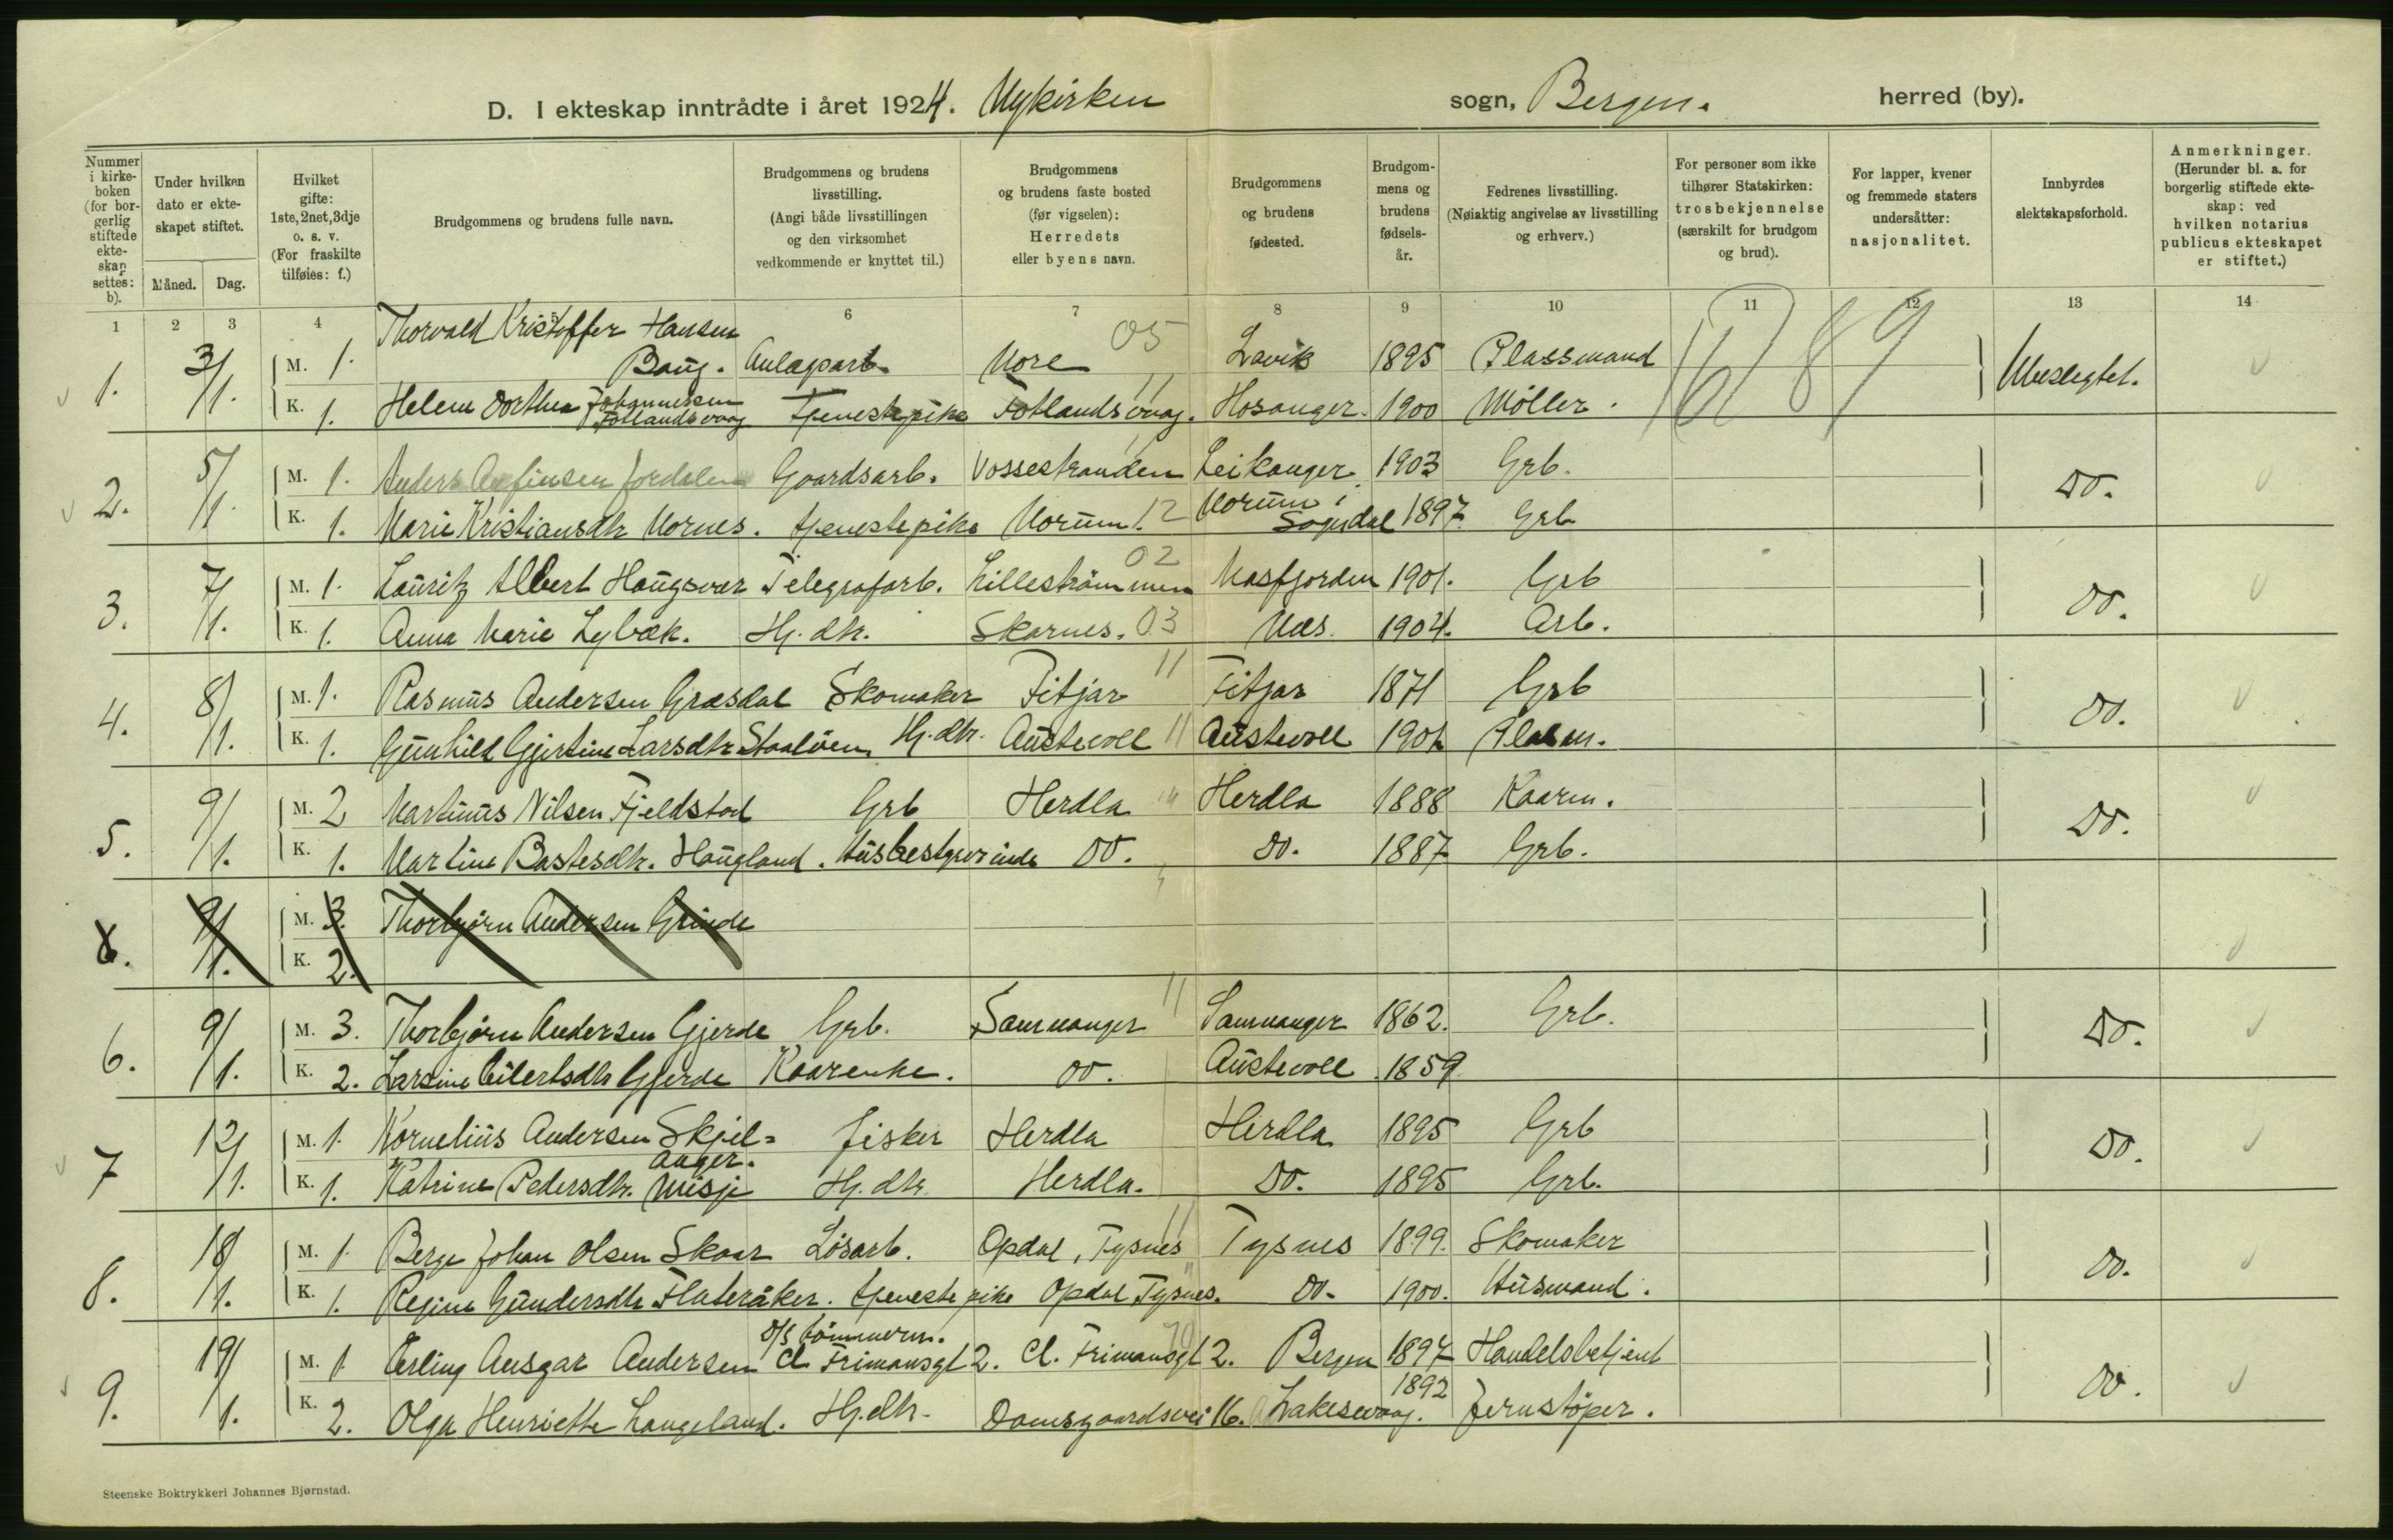 D. I ekteskap inntrådte i året 1924. Nykirken sogn, Bergen. herred (by).
Nummer i kirke-boken (for bor-gerlig stiftede ekte-skap settes: b).
Under hvilken dato er ekte-skapet stiftet.
Måned. Dag.
Hvilket gifte: 1ste, 2net, 3dje o. s. v. (For fraskilte tilføies: f.)
Brudgommens og brudens fulle navn.
Brudgommens og brudens livsstilling. (Angi både livsstillingen og den virksomhet vedkommende er knyttet til.)
Brudgommens og brudens faste bosted (før vigselen): Herredets eller byens navn.
Brudgommens og brudens fødested.
Brudgom-mens og brudens fødsels-år.
Fedrenes livsstilling. (Nøiaktig angivelse av livsstilling og erhverv.)
For personer som ikke tilhører Statskirken: trosbekjennelse (særskilt for brudgom og brud).
For lapper, kvener og fremmede staters undersåtter: nasjonalitet.
Innbyrdes slektskapsforhold.
Anmerkninger. (Herunder bl. a. for borgerlig stiftede ekte-skap: ved hvilken notarius publicus ekteskapet er stiftet.)
1 2 3 4 5 6 7 8 9 10 11 12 13 14
Thorvald Kristoffer Hansen
1. 3/1. M. 1. Baug. Anlægsarb. Nore 05 Lavik 1895 Plassmand Ubeslegtet.
K. 1. Helene Dorthea Johannessen Fotlandsvaag Tjenestepike Fotlandsvaag. 11 Hosanger. 1900 Møller.
2. 5/1. M. 1. Anders Anfinsen Jordalen Gaardsarb. Vossestranden Leikanger. 1903 Grb. Do.
K. 1. Marie Kristiansdtr Nornes. tjenestepike Norum. 12 Norum i Sogndal 1897. Grb
3. 7/1. M. 1. Lauritz Albert Haugsvær Telegrafarb. Lilleströmmen 02 Masfjorden 1901. Grb Do.
K. 1. Anna Marie Lybæk. Hj. dtr. Skarnes. 03 Næs. 1904. Arb.
4. 8/1. M. 1. Rasmus Andersen Græsdal Skomaker Fitjar 11 Fitjar 1871 Grb Do.
K. 1. Gunhild Gjertine Larsdtr Stoaløen Hj. dtr. Austevoll 11 Austevoll 1901. Plassm.
5. 9/1. M. 2 Martinus Nilsen Fjeldstad Grb Herdla Herdla 1888 Kaarm. Do.
K. 1. Martine Bastesdtr. Haugland. Husbestyrerinde Do. Do. 1887 Grb.
6. 9/1. M. 3. Thorbjørn Andersen Grinde
K. 2.
6. 9/1. M. 3. Thorbjørn Andersen Gjerde Grb. Samnanger 11 Samnanger 1862. Grb. Do.
K. 2. Larsine Eilertsdtr Gjerde Kaarenke. Do. Austevoll 1859
7 12/1. M. 1. Kornelius Andersen Skjel=anger. fisker Herdla Herdla 1895 Grb Do.
K. 1. Katrine Pedersdtr. Misje Hj. dtr. Herdla. Do. 1895 Grb.
8. 18/1. M. 1. Berge Johan Olsen Skaar Løsarb. Opdal, Tysnes 11 Tysnes 1899. Skomaker Do.
K. 1. Regine Gundersdtr Flateråker. tjenestepike Opdal Tysnes. Do. 1900. Husmand.
9. 19/1. M. 1 Erling Ansgar Andersen D/S tömmerm. Cl. Frimansgt 2. Cl. Frimansgt 2. Bergen 1897 Handelsbetjent Do.
K. 2. Olga Henriette Langeland. Hj. dtr. Damsgaardsvei 16. Laksevaag. 1892 Jernstöper.
Steenske Boktrykkeri Johannes Bjørnstad.